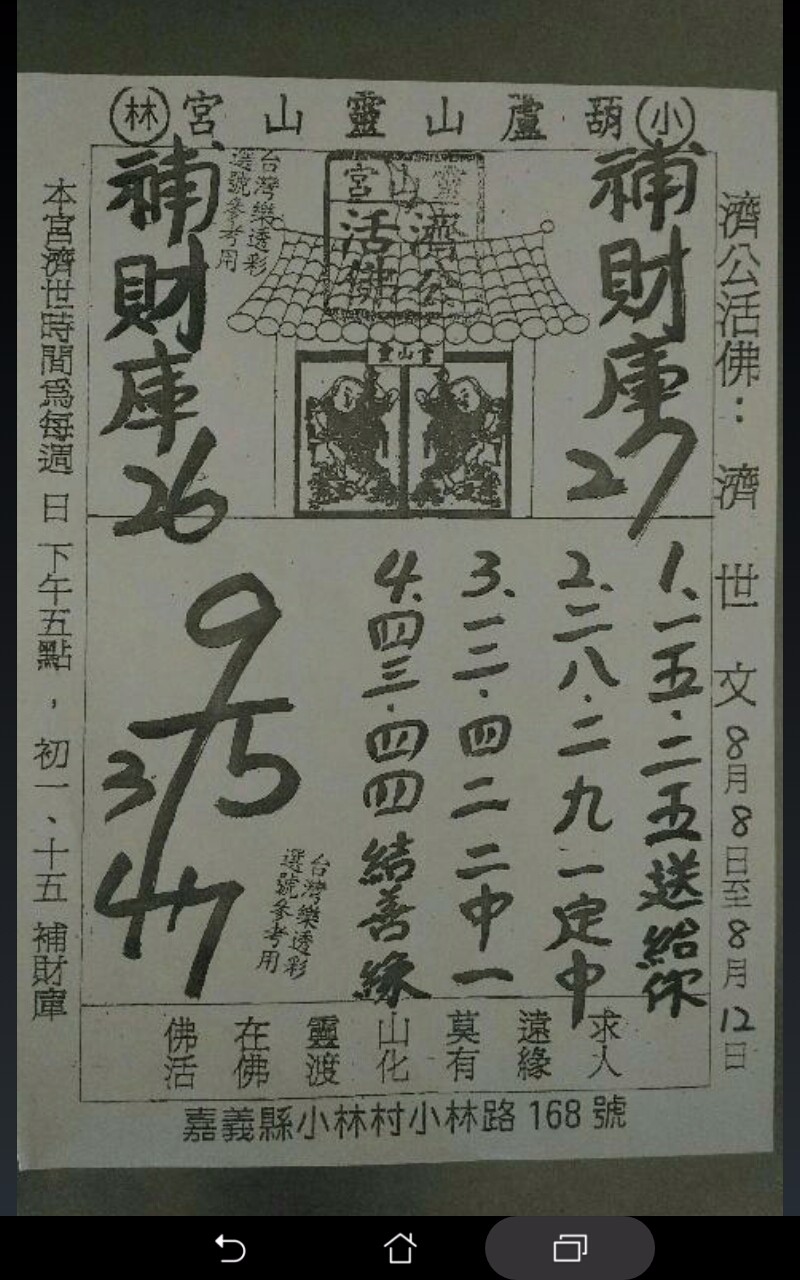 小 葫蘆山靈山宮 林
濟公活佛：濟世文 8月8日至8月12日
補財庫 27
靈山宮
濟公
活佛
靈山宮
台灣樂透彩
選號參考用
補財庫 26
1.一五．二五送給你
2.二八．二九一定中
3.一二．四二二中一
4.四三．四四結善緣
9
3 5
4 47
台灣樂透彩
選號參考用
求人
遠緣
莫有
山化
靈渡
在佛
佛活
本宮濟世時間為每週日下午五點，初一、十五補財庫
嘉義縣小林村小林路168號